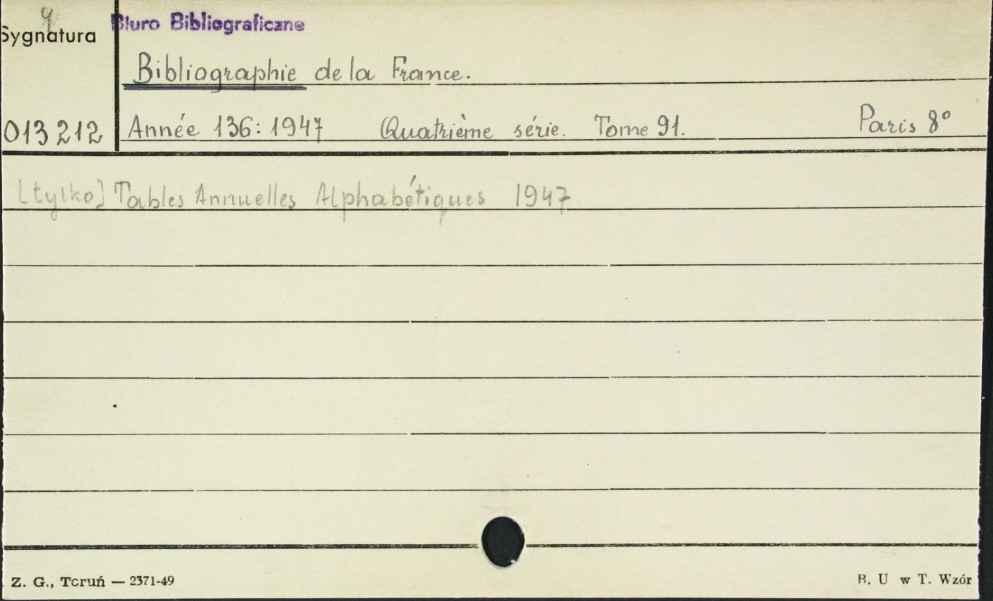 Biuro Bibliograficzne
Sygnatura
Bibliographie de la France.
013212 Année 136: 1947 Quatrième série. Tome 91. Paris 8°
[tylko] Tables Annuelles Alphabétiques 1947
Z. G., Toruń — 2371-49
B. U w T. Wzór